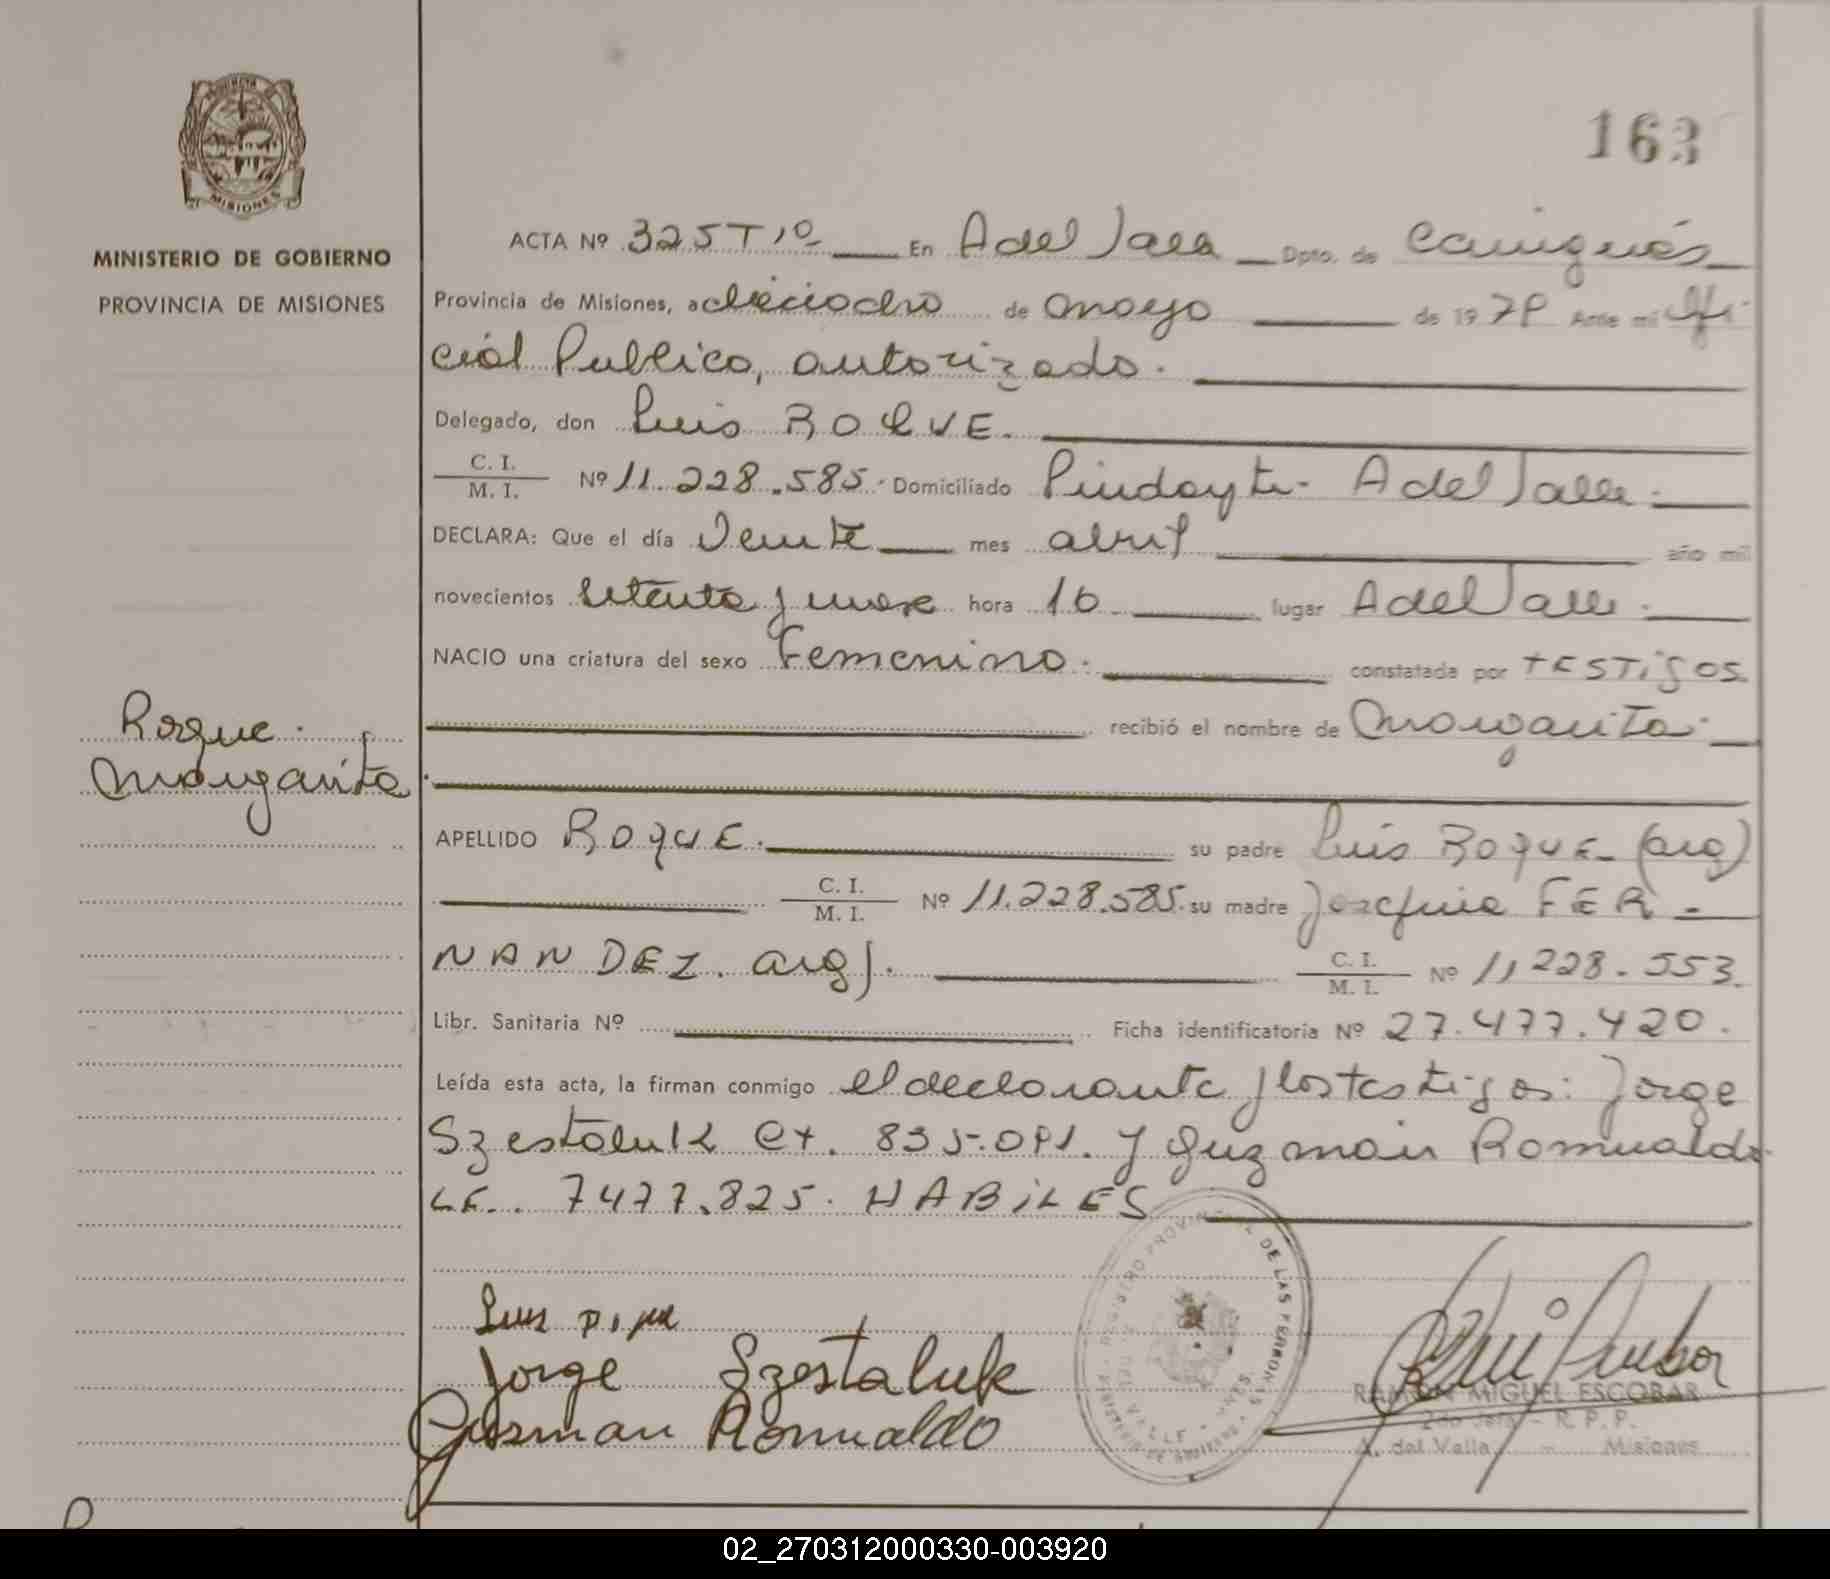 PROVINCIA DE
MISIONES
MINISTERIO DE GOBIERNO
PROVINCIA DE MISIONES
163
ACTA Nº 325 Tº En A del Valle Dpto. de Cainguás
Provincia de Misiones, a dieciocho de mayo de 1979 Ante mi Ofi
cial Publico, autorizado.
Delegado, don Luis ROQUE.
C. I. / M. I. Nº 11.228.585. Domiciliado Pindayti - A del Valle.
DECLARA: Que el día Veinte mes abril año mil
novecientos setenta y nueve hora 16 lugar A del Valle.
NACIO una criatura del sexo Femenino. constatada por TESTigos
recibió el nombre de Margarita.
Roque.
Margarita.
APELLIDO ROQUE. su padre Luis ROQUE - (arg)
C. I. / M. I. Nº 11.228.585. su madre Josefina FER -
NANDEZ. arg). C. I. / M. I. Nº 11,228.553.
Libr. Sanitaria Nº Ficha identificatoria Nº 27.477.420.
Leída esta acta, la firman conmigo el declarante y los testigos: Jorge
Szestaluk CI. 835.091. y Guzman Romualdo
LE. 7477.825. HABiLES
Luis
Jorge Szestaluk
Gusman Romualdo
REGISTRO PROVINCIAL DE LAS PERSONAS
A. DEL VALLE - MNES.
MINISTERIO DE GOBIERNO
RAMON MIGUEL ESCOBAR
2do Jefe - R. P. P.
A. del Valle - Misiones
02_270312000330-003920